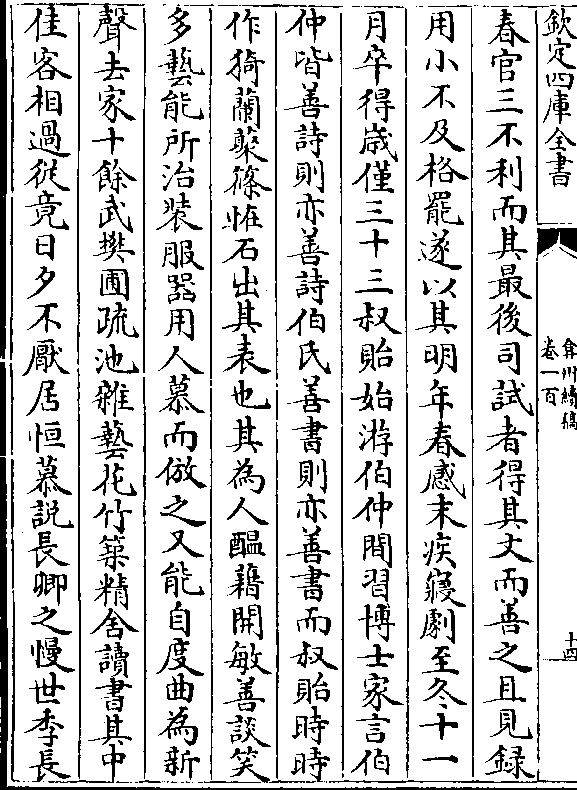 欽定四庫全書
弇州續稿
卷一百
十四
春官三不利而其最後司試者得其文而善之且見錄
用小不及格罷遂以其明年春感末疾寢劇至冬十一
月卒得歲僅三十三叔貽始游伯仲間習博士家言伯
仲皆善詩則亦善詩伯氏善書則亦善書而叔貽時時
作猗蘭藂篠恠石出其表也其為人醖藉開敏善談笑
多藝能所治裝服器用人慕而倣之又能自度曲為新
聲去家十餘武樊圃疏池雜藝花竹築精舍讀書其中
佳客相過從竟日夕不厭居恒慕説長卿之慢世季長